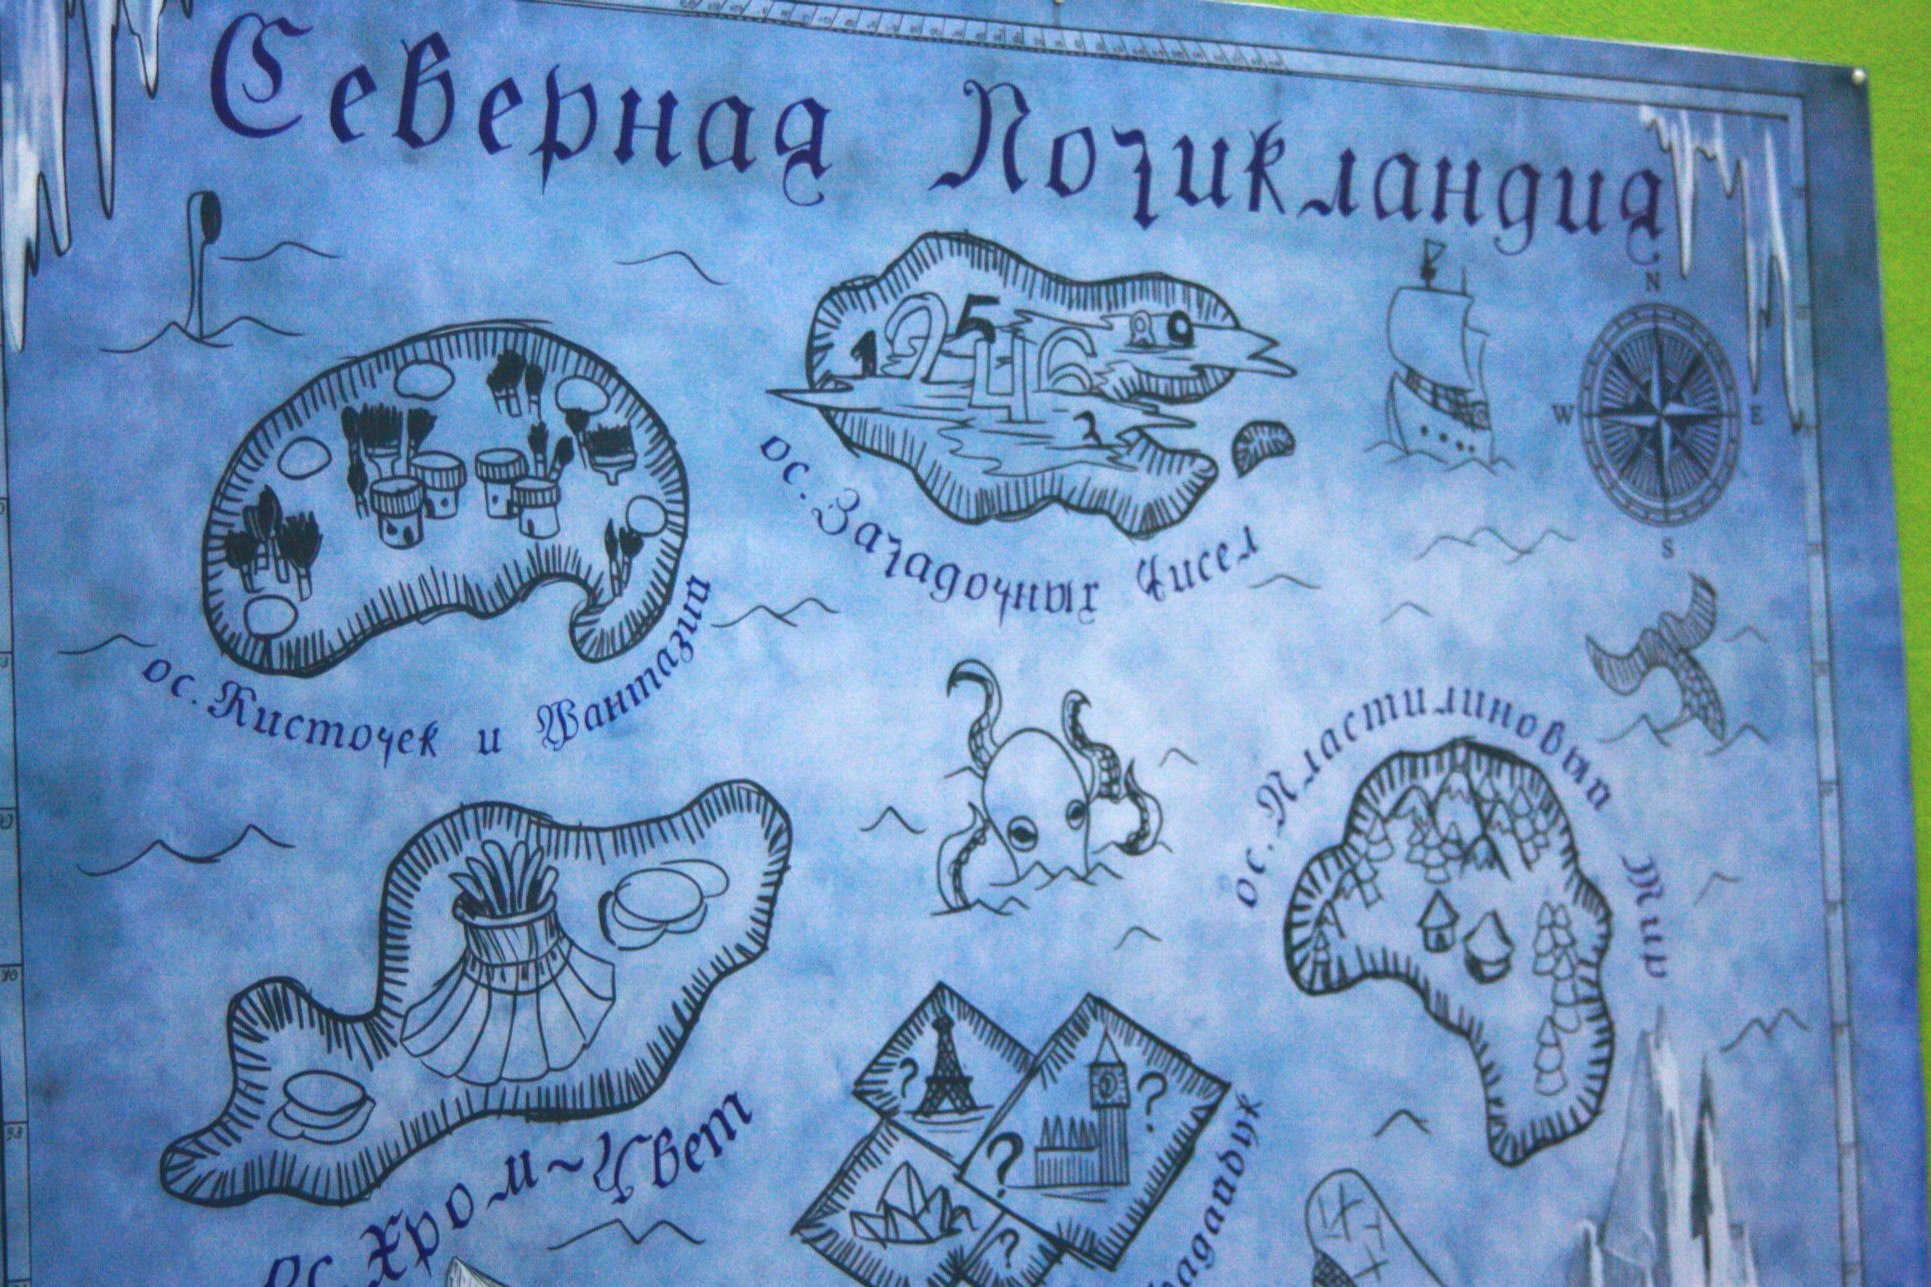 Северная Логикландия
N
W
E
S
1 2 5 4 6 8 9
3
ос. Загадочных Чисел
ос. Кисточек и Фантазии
ос. Пластилиновый Мир
? ?
? ?
ос. Хром~Цвет